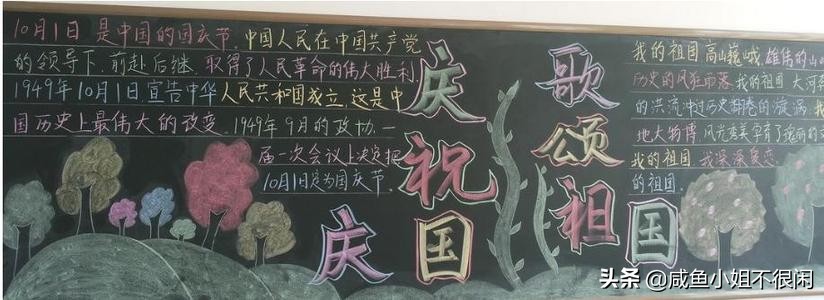 10月1日是中国的国庆节,中国人民在中国共产党
的领导下,前赴后继,取得了人民革命的伟大胜利.
1949年10月1日,宣告中华人民共和国成立,这是中
国历史上最伟大的改变.1949年9月的政协一
届一次会议上决定把
10月1日定为国庆节.
庆祝国庆
歌颂祖国
我的祖国高山巍峨,雄伟的山
历史的风狂雨落,我的祖国大河
的洪流冲过历史翻卷的漩涡,
地大物博 风光秀美孕育了瑰丽的
我的祖国,我深深爱恋
的祖国.
头条 @咸鱼小姐不很闲